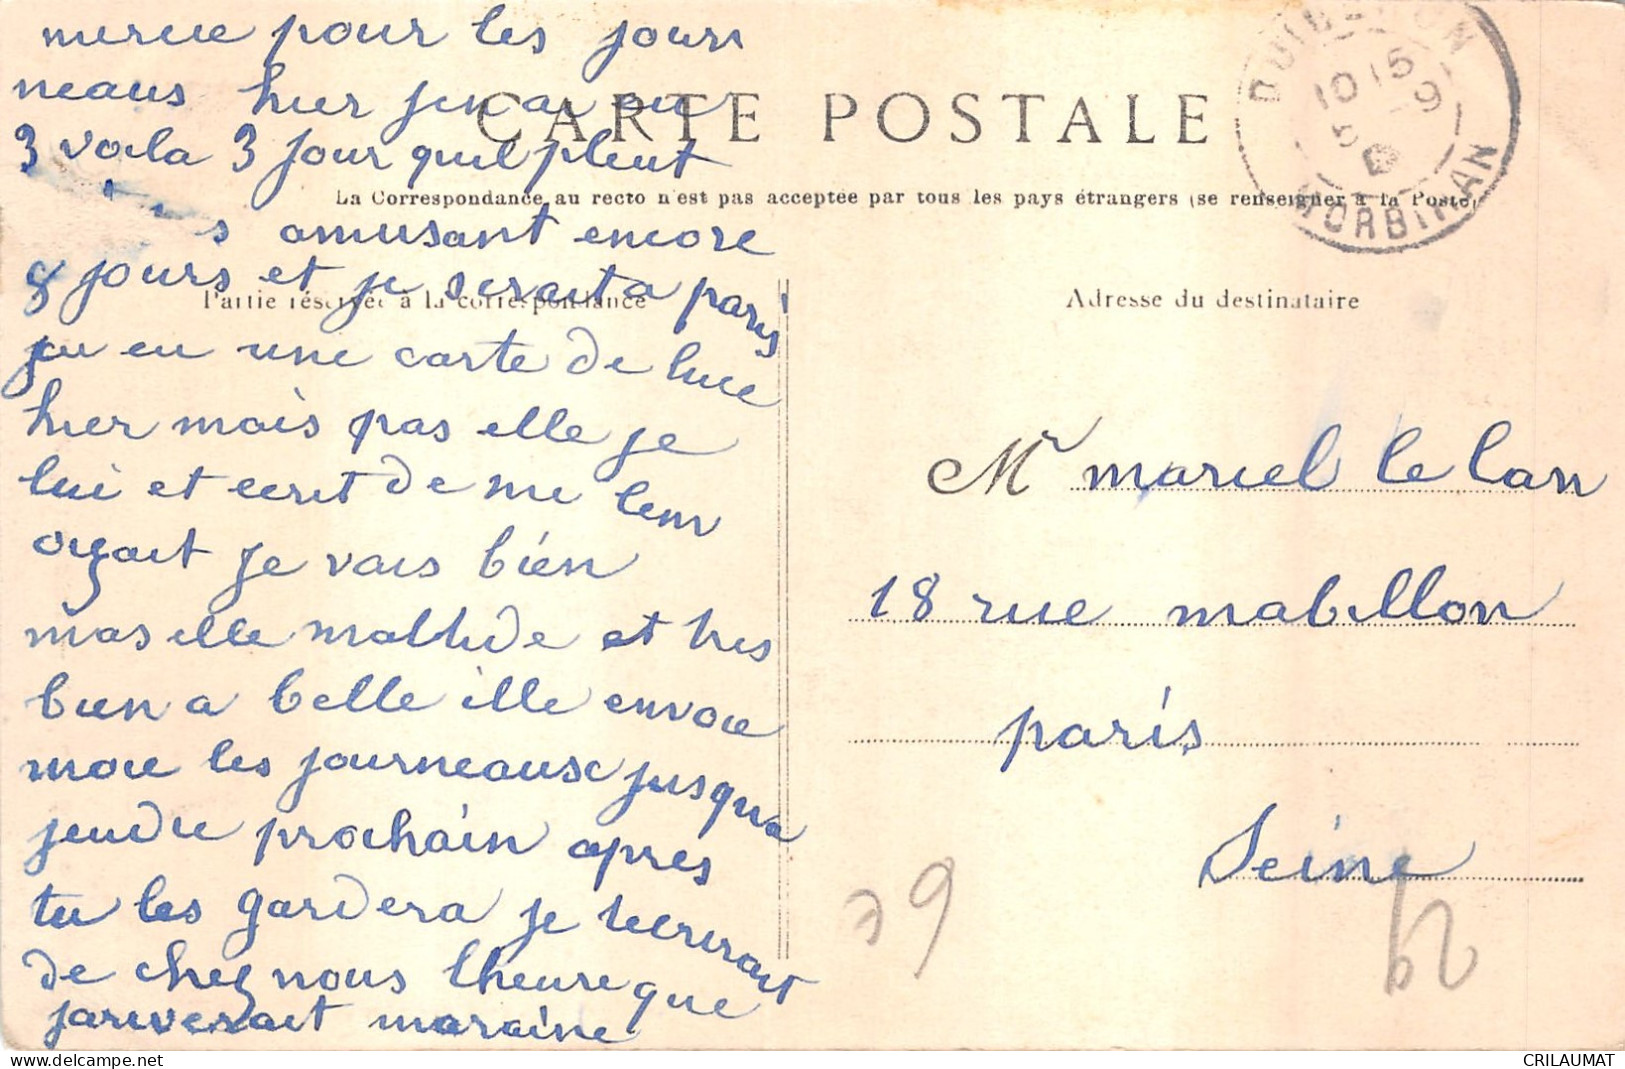 mercie pour les jours
neaus hier jen ai eu
3 voila 3 jour quil pleut
s amusant encore
8 jours et je serait a paris
jai eu une carte de luce
hier mais pas elle je
lui et ecrit de me lenv
oyait je vais bien
mas elle mathide et tres
bien a belle ille envoie
moie les journeause jusqua
jeudie prochain apres
tu les gardera je tecrirait
de chez nous lheure que
jariverait maraine
CARTE POSTALE
La Correspondance au recto n'est pas acceptée par tous les pays étrangers (se renseigner à la Poste)
Partie réservée à la correspondance
Adresse du destinataire
QUIBERON
10 15
5 - 9
MORBIHAN
Mr marcel le lan
18 rue mabillon
paris
Seine
CRILAUMAT